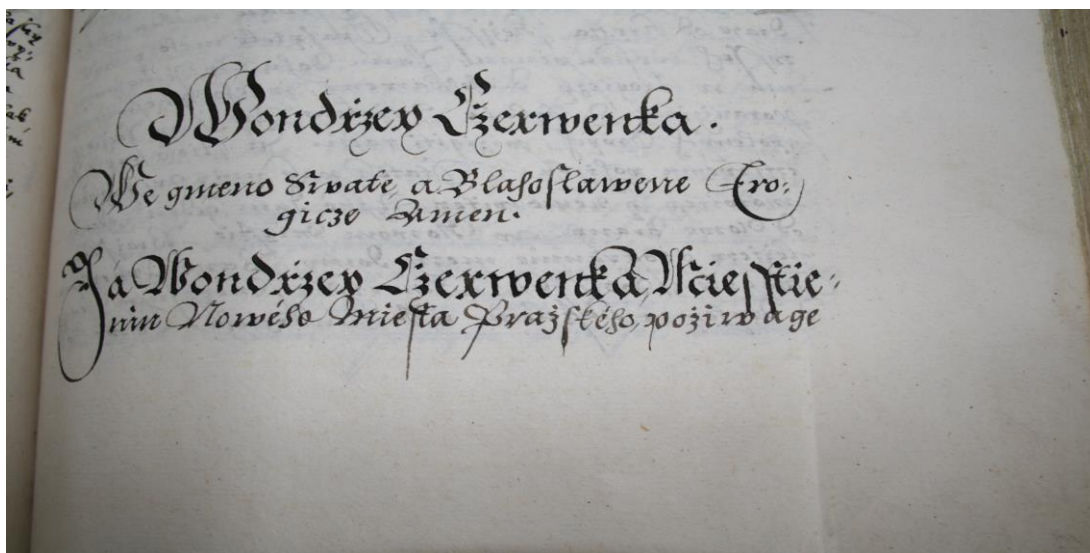 Wondržeg Czerwenka.
We gmeno Swate a Blahoslawene Tro:
gicze Amen.
Ja Wondržeg Czerwenka Miesstie:
nin Nowého Miesta Pražského, požiwage